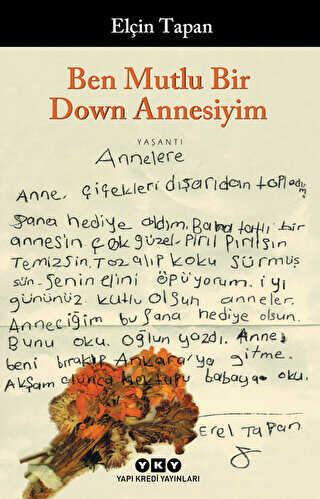 Elçin Tapan
Ben Mutlu Bir
Down Annesiyim
YAŞANTI
Annelere
Anne, çiçekleri dışarıdan topladım,
sana hediye aldım. Bana tatlı bir
annesin çok güzel pırıl pırılsın
Temizsin, Toz alıp koku sürmüş
sün. Senin elini öpüyorum. iyi
gününüz kutlu olsun anneler.
Anneciğim bu sana hediye olsun.
Bunu oku. Oğlun yazdı. Anne,
beni bırakıp Ankara'ya gitme.
Akşam olunca mektubu babaya oku.
Erel Tapan
YKY
YAPI KREDİ YAYINLARI